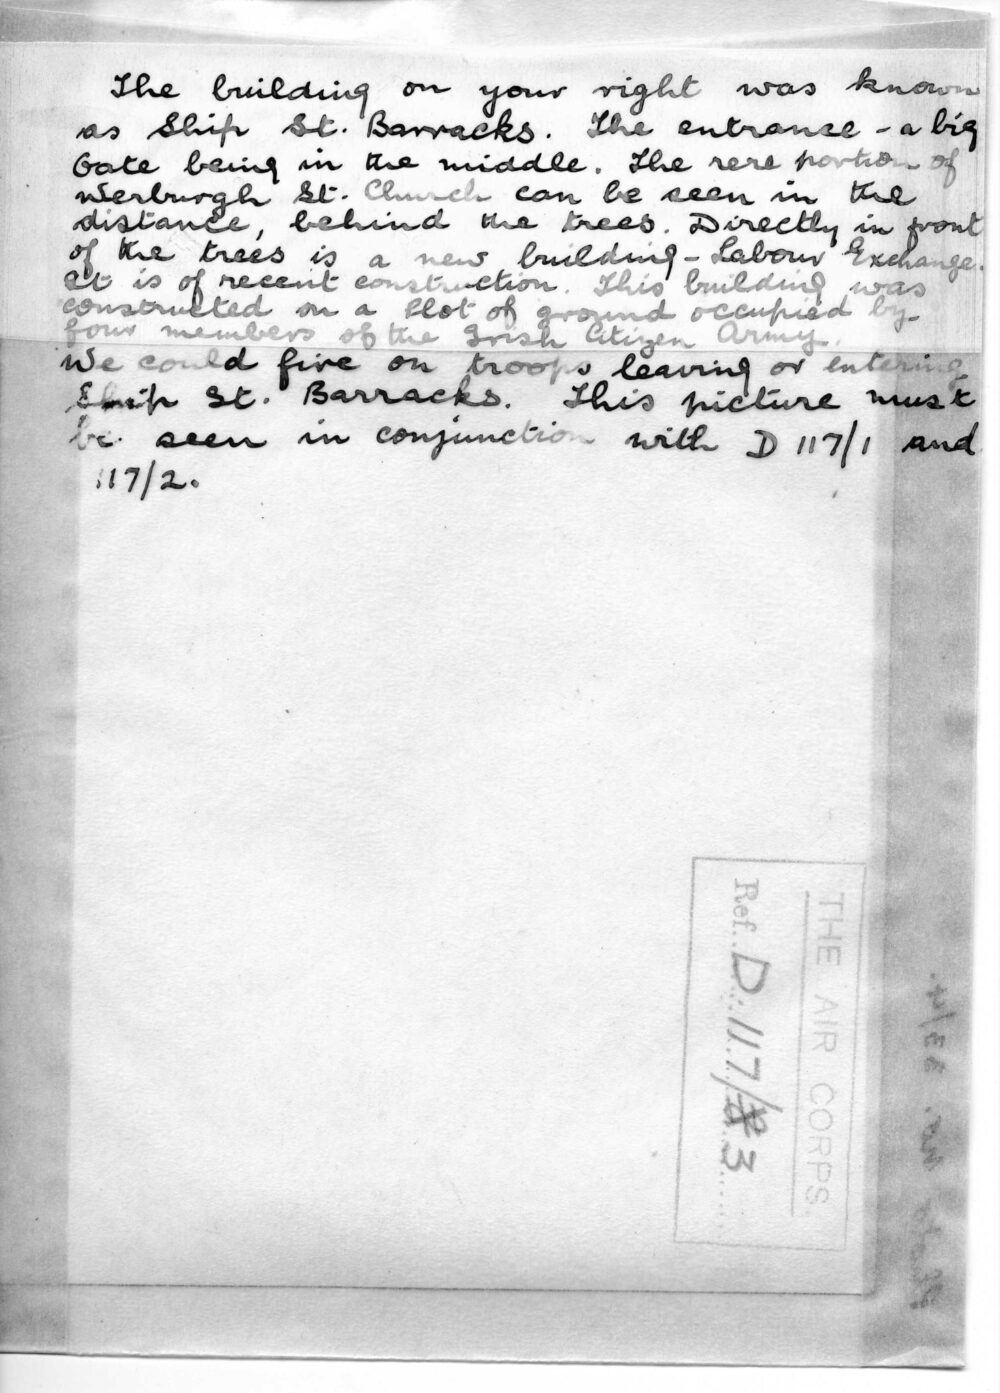 The building on your right was known
as Ship St. Barracks. The entrance - a big
Gate being in the middle. The rere portion of
Werburgh St. Church can be seen in the
distance, behind the trees. Directly in front
of the trees is a new building - Labour Exchange.
It is of recent construction. This building was
constructed on a Plot of ground occupied by
four members of the Irish Citizen Army.
We could fire on troops leaving or entering
Ship St. Barracks. This picture must
be seen in conjunction with D 117/1 and
117/2.
THE AIR CORPS.
Ref. D. 117/3